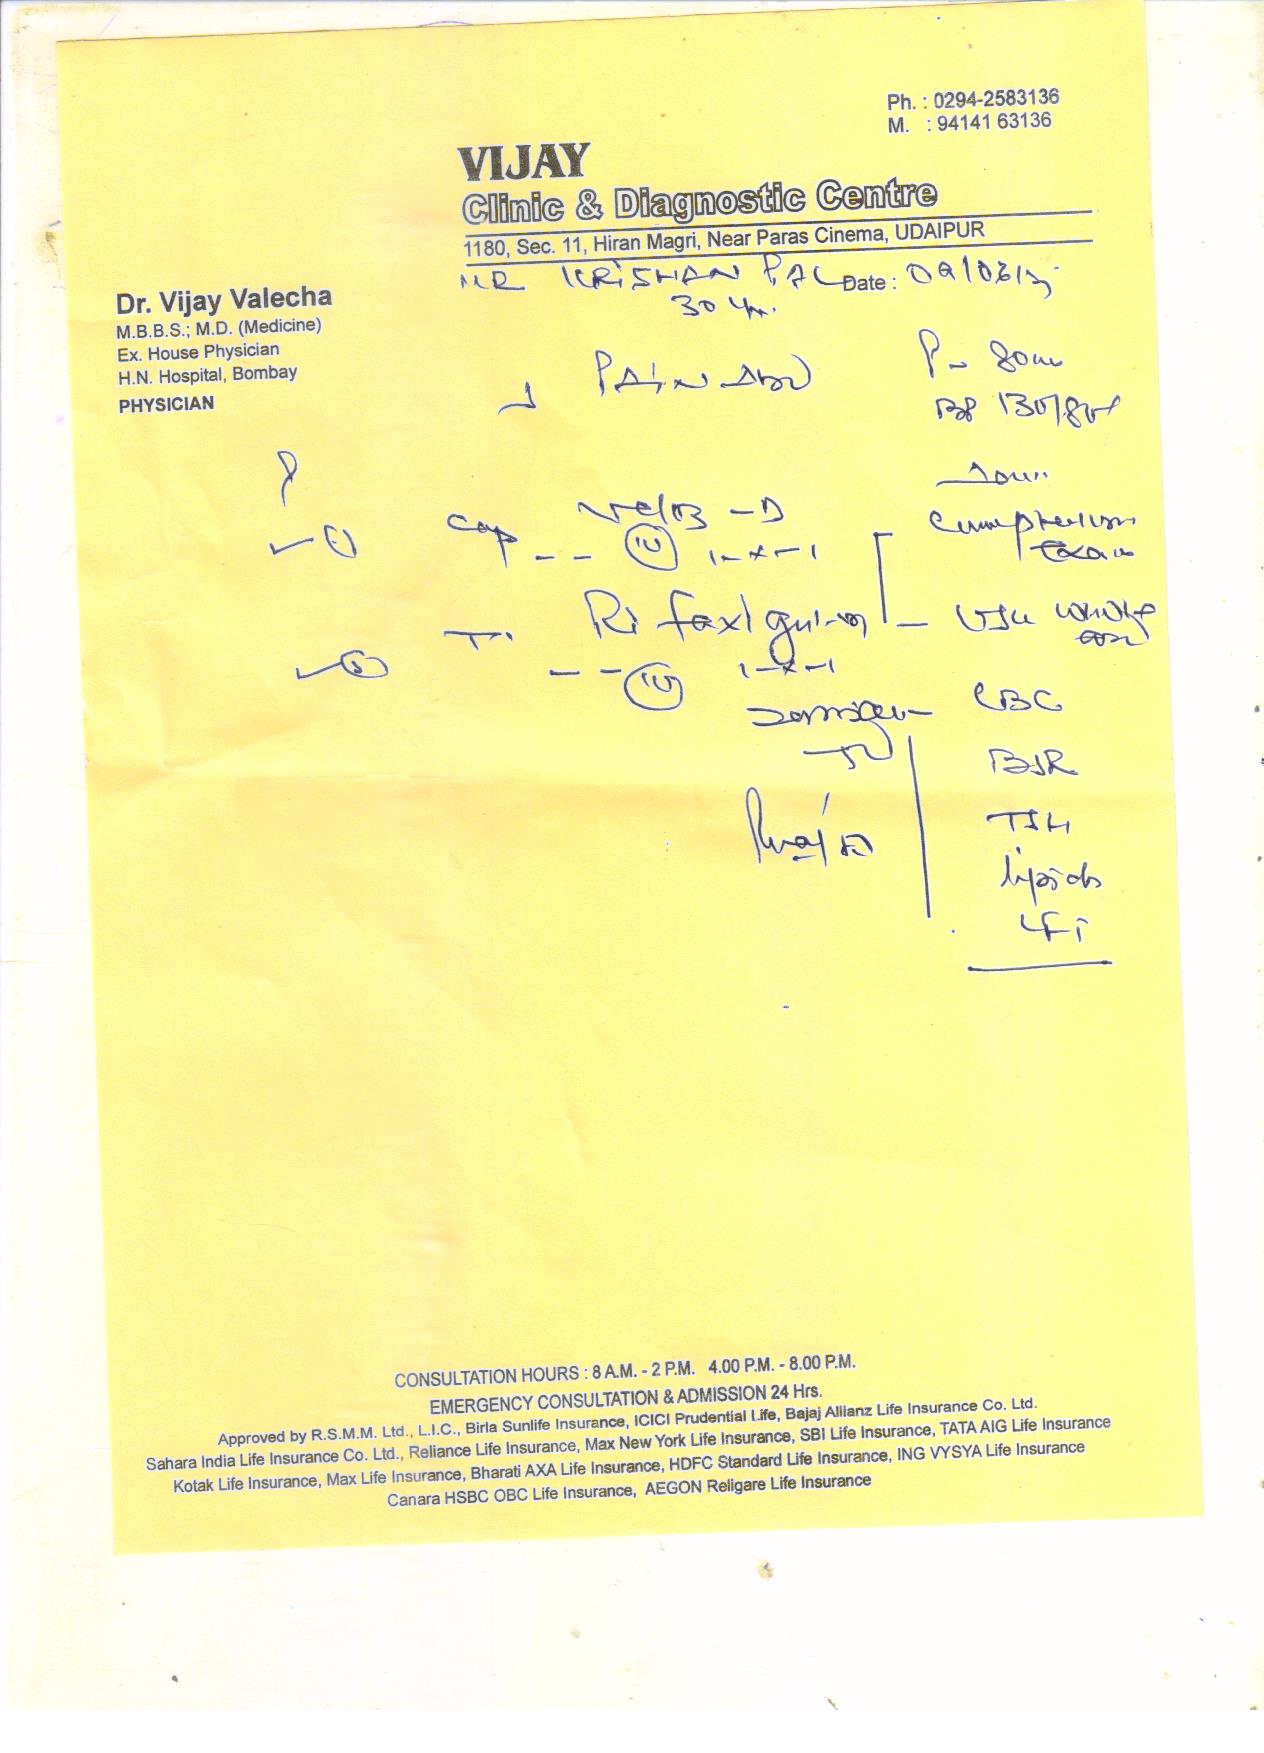 Ph. : 0294-2583136
M. : 94141 63136
VIJAY
Clinic & Diagnostic Centre
1180, Sec. 11, Hiran Magri, Near Paras Cinema, UDAIPUR
MR KRISHAN PAL Date : 09/03/
30 yr.
Dr. Vijay Valecha
M.B.B.S.; M.D. (Medicine)
Ex. House Physician
H.N. Hospital, Bombay
PHYSICIAN
PAIN ABD
P - 80
BP 130/80
Cap - D
-- 10 1-x-1
T. Rifaxigut-
-- 10 1-x-1
USG whole
CBC
BSR
TSH
lipids
LFT
CONSULTATION HOURS : 8 A.M. - 2 P.M. 4.00 P.M. - 8.00 P.M.
EMERGENCY CONSULTATION & ADMISSION 24 Hrs.
Approved by R.S.M.M. Ltd., L.I.C., Birla Sunlife Insurance, ICICI Prudential Life, Bajaj Allianz Life Insurance Co. Ltd.
Sahara India Life Insurance Co. Ltd., Reliance Life Insurance, Max New York Life Insurance, SBI Life Insurance, TATA AIG Life Insurance
Kotak Life Insurance, Max Life Insurance, Bharati AXA Life Insurance, HDFC Standard Life Insurance, ING VYSYA Life Insurance
Canara HSBC OBC Life Insurance, AEGON Religare Life Insurance